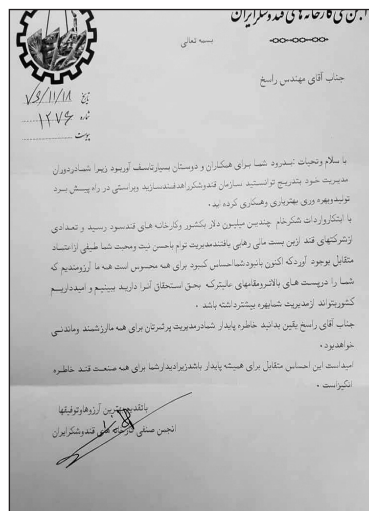 انجمن صنفی کارخانه های قندوشکر ایران
بسمه تعالی
جناب آقای مهندس راسخ
تاریخ ۷۳/۱۱/۱۸
شماره ۱۲۷۶
پیوست
با سلام وتحیات تبدرود شما برای همکاران و دوستان بسیارتاسف آوربود زیرا شمادردوران
مدیریت خود بتدریج توانستید سازمان قندوشکرراهدفمندسازید وبراستی در راه پیش برد
تولیدوبهره وری بهتریاری وهمکاری کرده اید.
با ابتکارواردات شکرخام چندین میلیون دلار بکشور وکارخانه های قندسود رسید و تعدادی
ازشرکتهای قند ازبن بست مالی رهایی یافتندمدیریت توام باحسن نیت ومحبت شما طیفی ازاعتماد
متقابل بوجود آوردکه اکنون بانبودشمااحساس کمبود برای همه محسوس است همه ما آرزومندیم که
شما را درپست های بالاترومقامهای عالیترکه بحق استحقاق آنرا دارید ببینیم و امیدواریم
کشوربتواند ازمدیریت شمابهره بیشترداشته باشد .
جناب آقای راسخ یقین بدانید خاطره پایدار شمادرمدیریت پرثمرتان برای همه ماارزشمند وماندنی
خواهدبود.
امیداست این احساس متقابل برای همیشه پایدار باشدزیرادیدارشما برای همه صنعت قند خاطره
انگیزاست .
باتقدیم بهترین آرزوهاوتوفیقها
انجمن صنفی کارخانه های قندوشکرایران